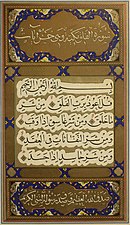 سورة الفلق مكية وهي خمس آيات
بسم الله الرحمن الرحيم
قل أعوذ برب الفلق من شر
ما خلق ومن شر غاسق إذا
وقب ومن شر النفاثات في العقد
ومن شر حاسد إذا حسد
صدق الله العلي العظيم وصدق رسوله النبي الكريم